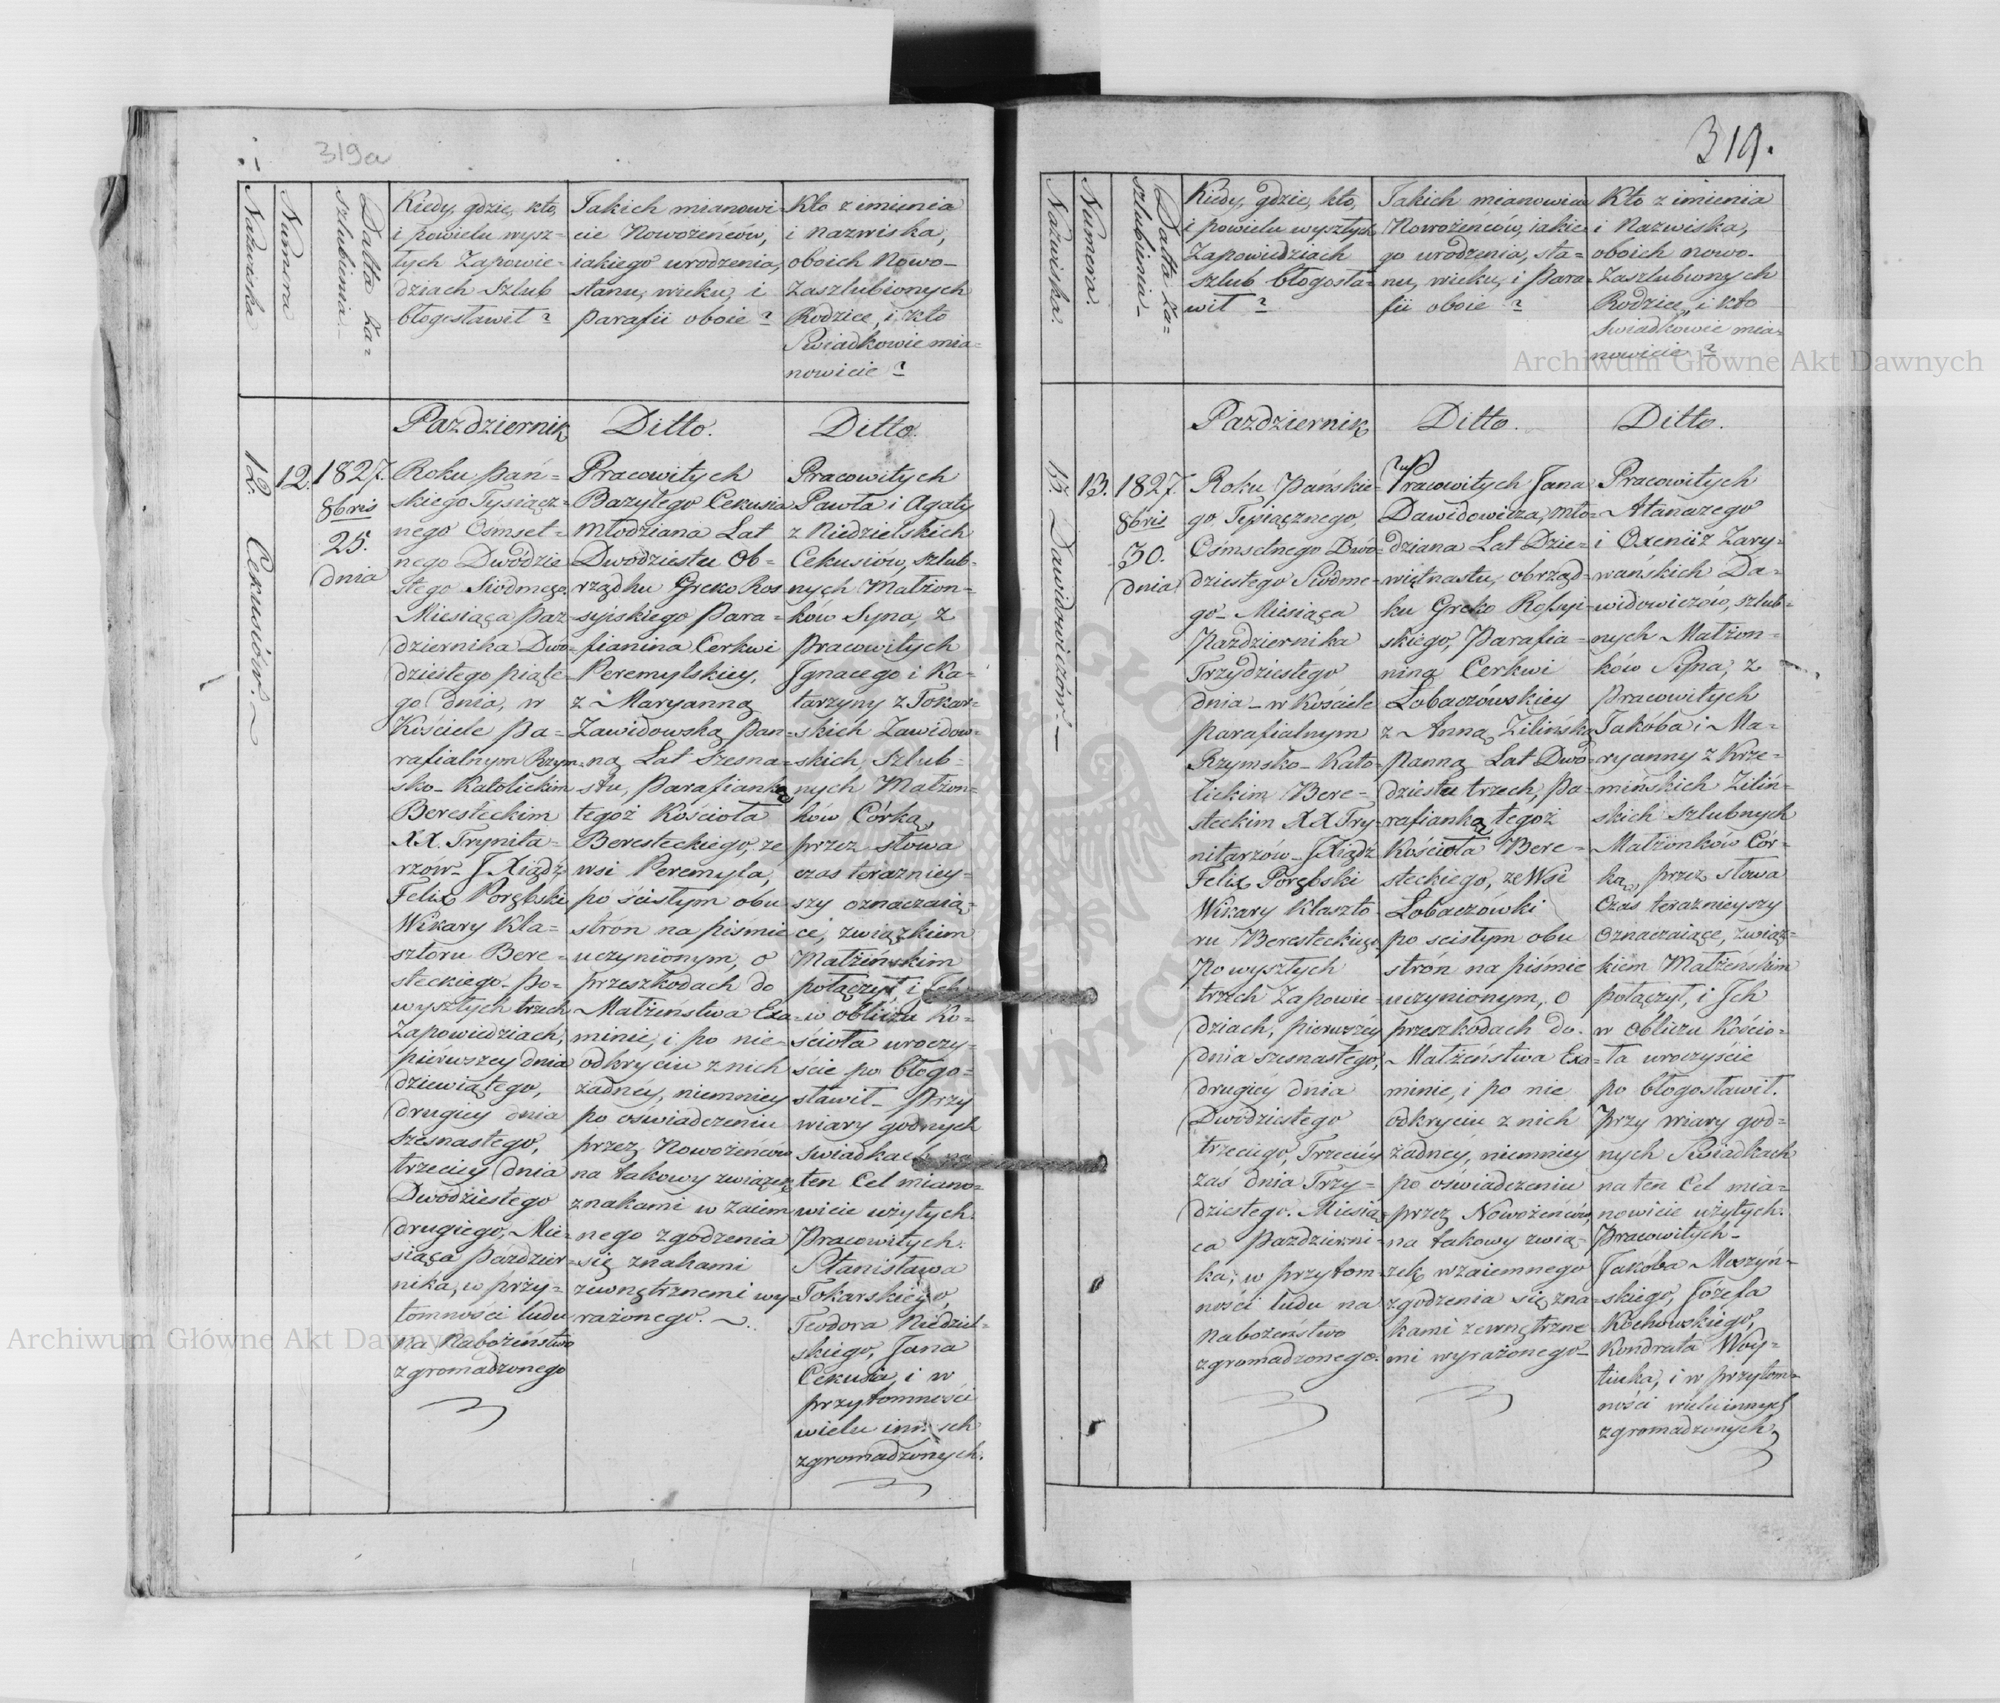 319a
Nazwiska
Numera
Datta za-
szlubienia
Kiedy, gdzie, kto,
i powielu wysz-
łych Zapowie-
dziach Szlub
błogosławił?
Jakich mianowi-
cie Nowożeńców,
iakiego urodzenia,
stanu, wieku, i
parafii oboie?
Kto z imienia
i nazwiska,
oboich Nowo-
Zaszlubionych
Rodzice, i kto
Swiadkowie mia-
nowicie?
Pazdziernik
Ditto.
Ditto.
12. Cekusiów.
12.
1827.
8bris
25.
dnia
Roku Pań-
skiego Tysiącz-
nego Ośmset-
nego Dwódzie-
stego Siódmego,
Miesiąca Paz-
dziernika Dwó-
dziestego piąte-
go dnia, w
Kościele Pa-
rafialnym Rzym-
sko-Katolickim
Beresteckim
XX. Trynita-
rzów JXiądz
Felix Porębski
Wikary Kla-
sztoru Bere-
steckiego po-
wyszłych trzech
Zapowiedziach,
pierwszey dnia
dziewiątego,
drugiey dnia
szesnastego,
trzeciey dnia
Dwódziestego
drugiego, Mie-
siąca Paździer-
nika, w przy-
tomności ludu
na Nabożeństwo
zgromadzonego
Pracowitych
Bazylego Cekusia
Młodziana Lat
Dwódziestu Ob-
rządku Greko Ros-
syiskiego Para-
fianina Cerkwi
Peremylskiey,
z Maryanną
Zawidowską Pan-
ną Lat Szesna-
stu, parafianką
tegoż Kościoła
Beresteckiego, ze
wsi Peremyla,
po ścisłym obu
strón na piśmie
uczynionym, o
przeszkodach do
Małżeństwa Exa-
minie, i po nie-
odkryciu z nich
żadnéy, niemniey
po oświadczeniu
przez Nowożeńców
na takowy związek
znakami wzaiem-
nego zgodzenia
się znakami
zewnętrznemi wy-
rażonego.
Pracowitych
Pawła i Agaty
z Niedzielskich
Cekusiów, szlub-
nych Małżon-
ków Syna, z
Pracowitych
Jgnacego i Ka-
tarzyny z Tokar-
skich Zawidow-
skich, Szlub-
nych Małżon-
ków Córką,
przez słowa
czas teraźniey-
szy oznaczaią-
ce, związkiem
Małżeńskim
połączył i Jch
w obliczu Ko-
ścioła uroczy-
ście po błogo-
sławił- przy
wiary godnych
świadkach na
ten Cel miano-
wicie użytych.
Pracowitych.
Stanisława
Tokarskiego,
Teodora Niedziel-
skiego, Jana
Cekusia, i w
przytomności
wielu innych
zgromadzonych.
319.
Nazwiska.
Numera.
Datta Za-
szlubienia-
Kiedy, gdzie, kto,
i powielu wyszłych
Zapowiedziach
szlub błogosła-
wił?
Jakich mianowicie
Nowożeńców, iakie-
go urodzenia, sta-
nu, wieku, i Para-
fii oboie?
Kto z imienia
i Nazwiska,
oboich nowo-
Zaszlubionych
Rodzice, i kto
Swiadkowie mia-
nowicie?
Pazdziernik
Ditto.
Ditto.
13. Dawidowiczów.
13.
1827.
8bris
30.
dnia
Roku Pańskie-
go, Tysiącznego,
Ośmsetnego Dwó-
dziestego Siódme-
go- Miesiąca
Pazdziernika
Trzydziestego
dnia- w Kościele
parafialnym
Rzymsko-Kato-
lickim Bere-
steckim XX Try-
nitarzów- JXiądz
Felix Porębski
Wikary Klaszto-
ru Beresteckiego,
Po wyszłych
trzech Zapowie-
dziach, pierwszéy
dnia szesnastego,
drugiéy dnia
Dwódziestego
trzeciego, Trzeciéy
zaś dnia Trzy-
dziestego. Miesią-
ca Pazdzierni-
ka, w przytom-
ności ludu na
Nabożeństwo
zgromadzonego.
Pracowitych Jana
Dawidowicza, Mło-
dziana Lat Dzie-
więtnastu, obrząd-
ku Greko Rossyi-
skiego, Parafia-
nina Cerkwi
Łobaczówskiey
z Anną Zilińską
Panną Lat Dwó-
dziestu trzech, Pa-
rafianką tegoż
Kościoła Bere-
steckiego, ze Wsi
Łobaczowki
po ścisłym obu
strón na piśmie
uczynionym, o
przeszkodach do
Małżeństwa Exa-
minie, i po nie
odkryciu z nich
żadnéy, niemniey
po oświadczeniu
przez Nowożeńców,
na takowy zwią-
zek wzaiemnego
zgodzenia się zna-
kami zewnętrzne-
mi wyrażonego-
Pracowitych
Atanazego
i Oxenii z Zary-
wańskich Da-
widowiczów, szlub-
nych Małżon-
ków Syna, z
Pracowitych
Jakoba i Ma-
ryanny z Krze-
mińskich Ziliń-
skich Szlubnych
Małżonków Cór-
ką, przez słowa
Czas teraznieyszy
Oznaczaiące, związ-
kiem Małżeńskim
połączył, i Jch
w obliczu Kościo-
ła uroczyście
po błogosławił.
przy wiary god-
nych Swiadkach
na ten Cel mia-
nowicie użytych.
Pracowitych-
Jakóba Moszyń-
skiego, Józefa
Kochowskiego,
Kondrata Woy-
tiuka, i w przytom-
ności wielu innych
zgromadzonych,
Archiwum Główne Akt Dawnych
Archiwum Główne Akt Dawnych